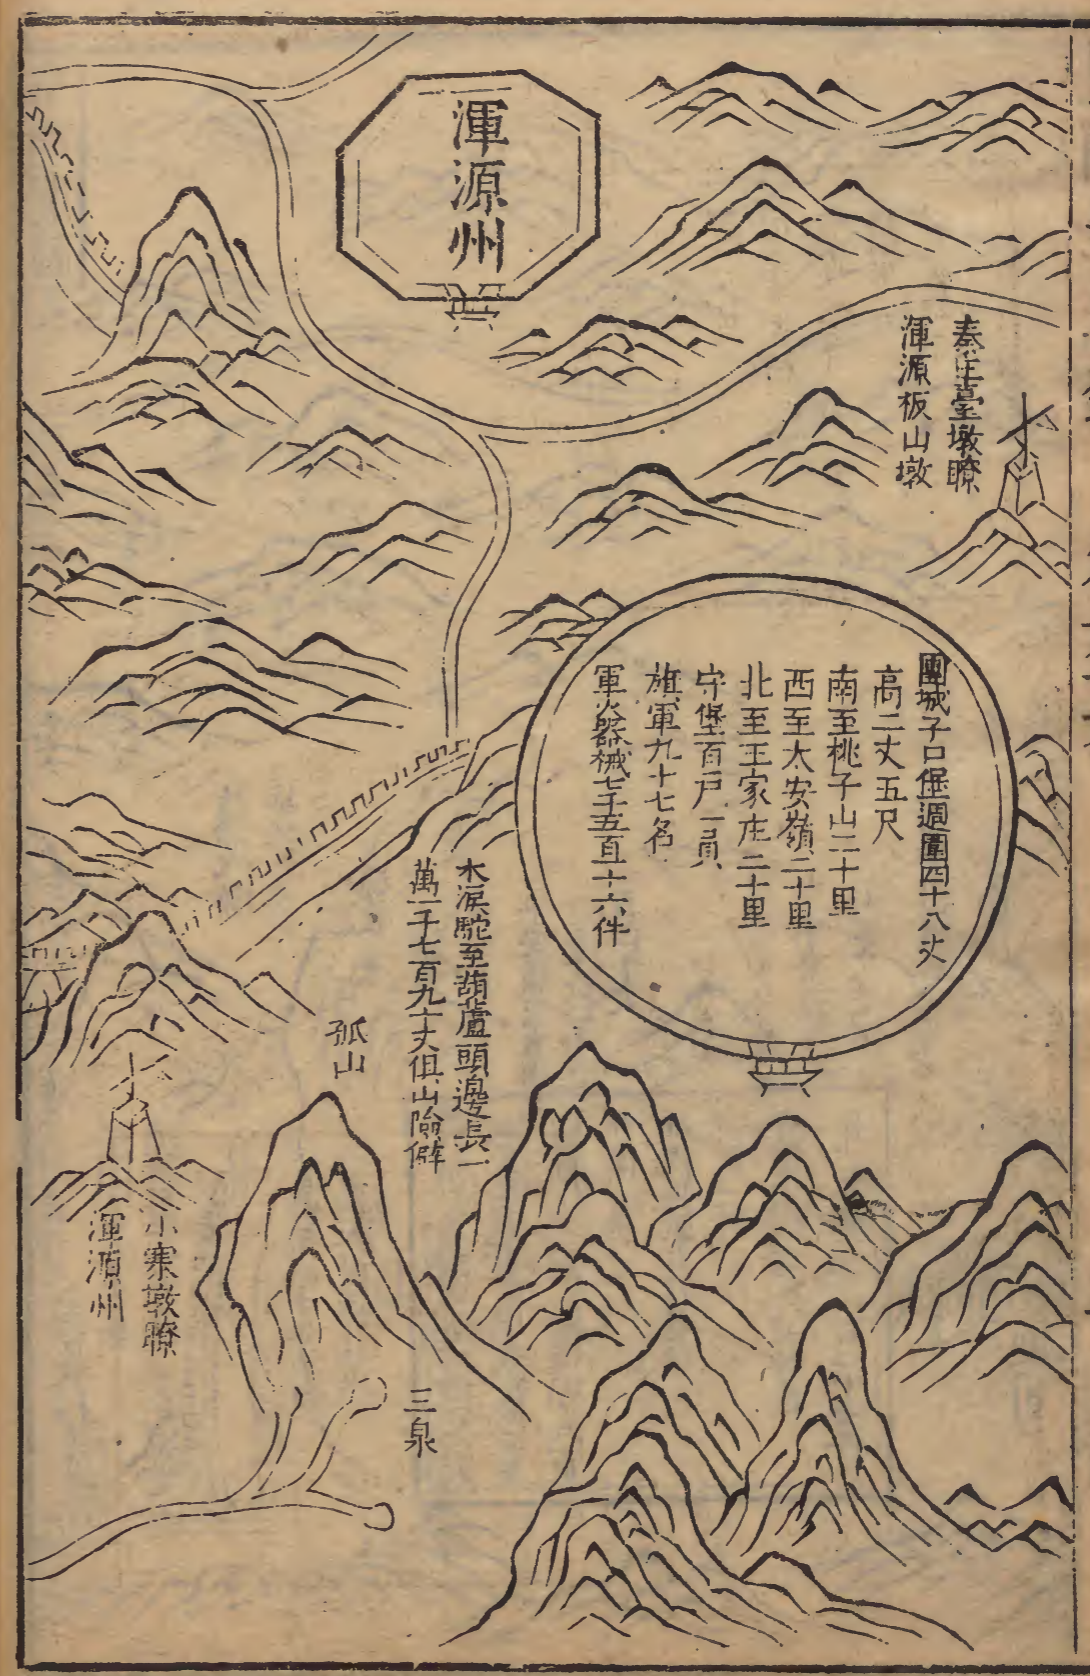 渾源州
秦庄臺墩瞭
渾源板山墩
團城子口堡週圍四十八丈
高二丈五尺
南至桃子山二十里
西至太安嶺二十里
北至王家庄二十里
守堡百戶一員
旗軍九十七名
軍火器械七千五百十六件
木泥駝至葫蘆頭邊長一
萬一千七百九十丈俱山險僻
孤山
小寨墩瞭
渾源州
三泉